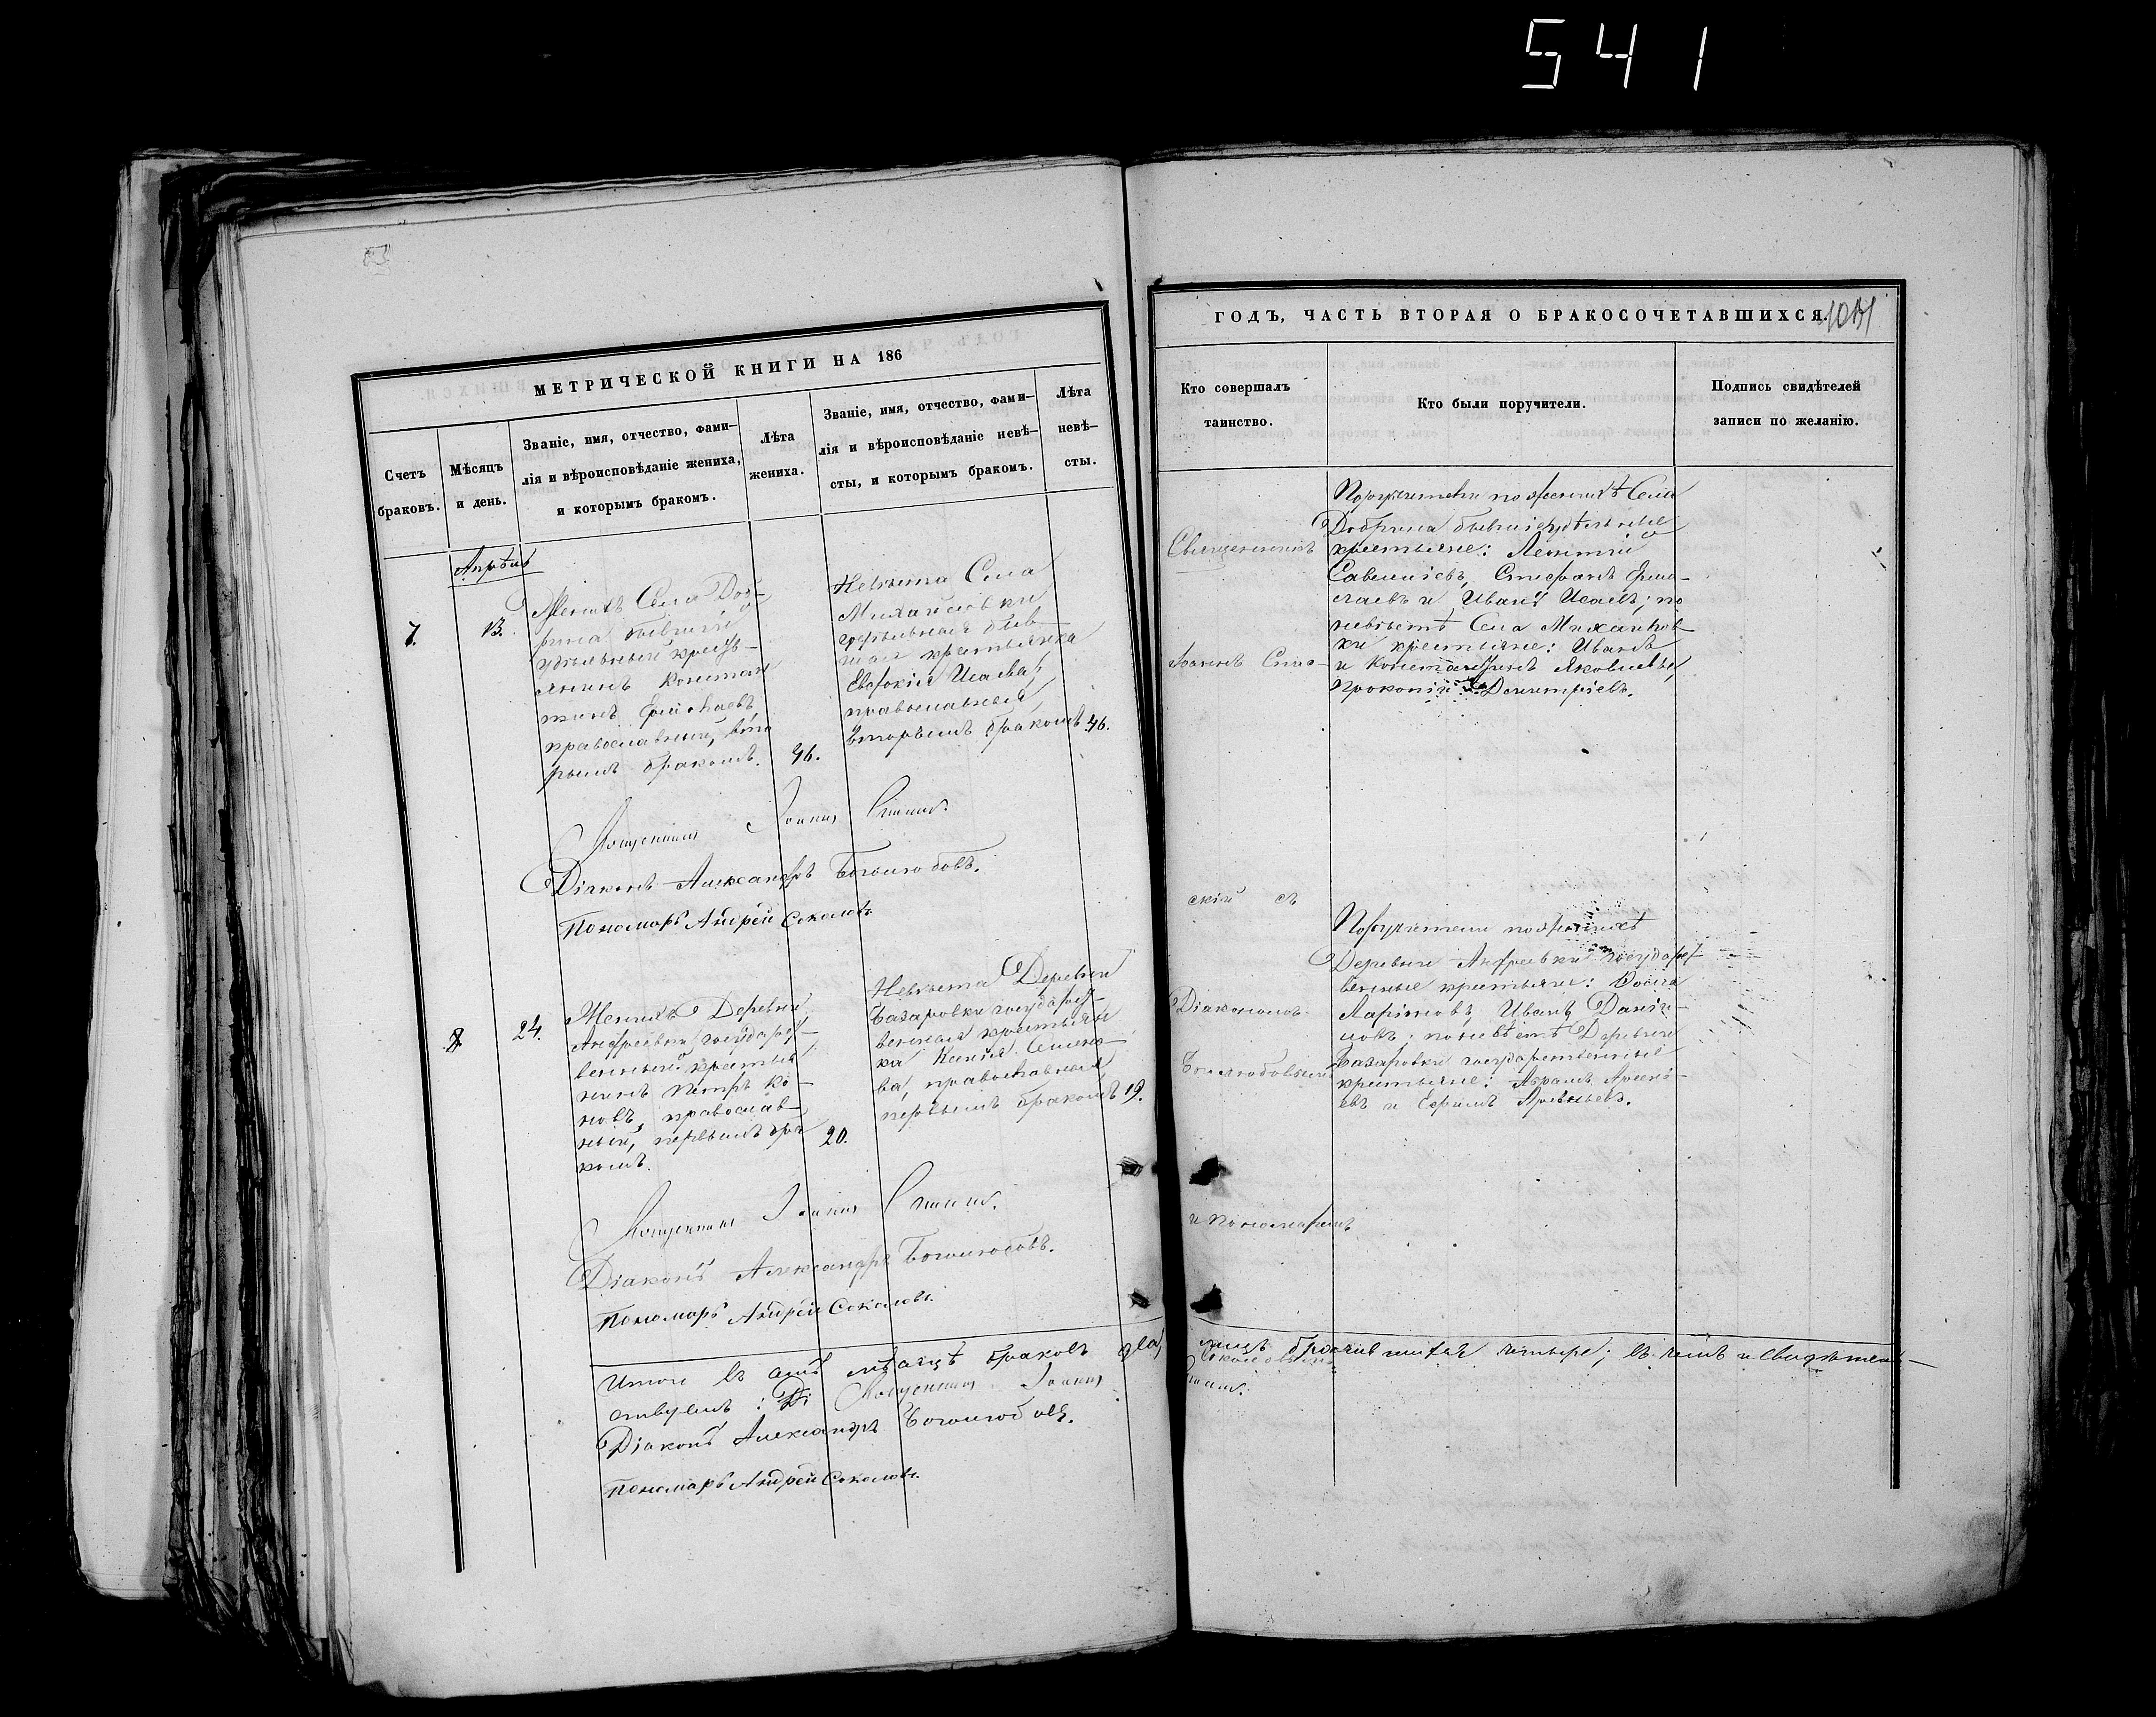 541
МЕТРИЧЕСКОЙ КНИГИ НА 186
Счетъ
браковъ.
Мѣсяцъ
и день.
Званіе, имя, отчество, фами-
лія и вѣроисповѣданіе жениха,
и которымъ бракомъ.
Лѣта
жениха.
Званіе, имя, отчество, фами-
лія и вѣроисповѣданіе невѣ-
сты, и которымъ бракомъ.
Лѣта
невѣ-
сты.
Апрѣль
7.
13.
Женихъ Села Доб-
рина бывшій
удѣльный кресть-
янинъ Констан
тинъ Ермолаевъ
православный, вто
рымъ бракомъ.
46.
Невѣста Села
Михайловки
удѣльная быв-
шая крестьянка
Евдокія Исаева,
православная,
вторымъ бракомъ
46.
Священникъ Іоаннъ
Діаконъ Александръ Боголюбовъ.
Пономарь Андрей Соколовъ.
8
24.
Женихъ Деревни
Андреевки государст-
венный крестья
нинъ Петръ Ко-
новъ, православ-
ный, первымъ бра
комъ.
20.
Невѣста Деревни
Базаровки государст-
венная крестьян
ка Ксенія Семено-
ва, православная
первымъ бракомъ
19.
Священникъ Іоаннъ
Діаконъ Александръ Боголюбовъ.
Пономарь Андрей Соколовъ.
Итого въ семъ мѣсяцѣ браковъ два,
ствуемъ: Священникъ Іоаннъ
Діаконъ Александръ Боголюбовъ.
Пономарь Андрей Соколовъ.
ГОДЪ, ЧАСТЬ ВТОРАЯ О БРАКОСОЧЕТАВШИХСЯ.
Кто совершалъ
таинство.
Кто были поручители.
Подпись свидѣтелей
записи по желанію.
Священникъ
Іоаннъ
скій съ
Діакономъ
Боголюбовымъ
и пономаремъ
Соколовымъ
Поручители по женихѣ Села
Добрина бывшіе удѣльные
крестьяне: Леонтій
Савельевъ, Стефанъ Ермо-
лаевъ и Иванъ Исаевъ; по
невѣстѣ Села Михайлов-
ки крестьяне: Иванъ
и Константинъ Яковлевы,
Прокопій Димитріевъ.
Поручители по женихѣ
Деревни Андреевки государст-
венные крестьяне:
Ларіоновъ, Иванъ Дани-
ловъ; по невѣстѣ Деревни
Базаровки государственные
крестьяне: Аврамъ Арсень-
евъ и Ефимъ Арсеньевъ.
лицъ брачившихся четыре; въ чемъ и свидѣтель-